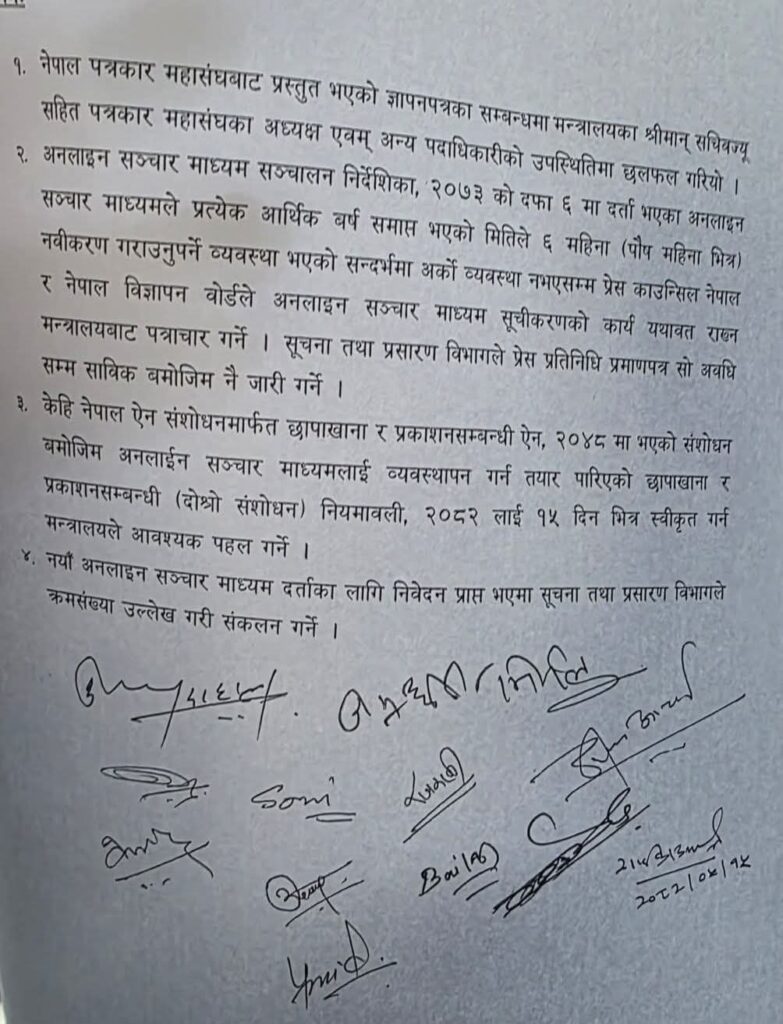 १. नेपाल पत्रकार महासंघबाट प्रस्तुत भएको ज्ञापनपत्रका सम्बन्धमा मन्त्रालयका श्रीमान् सचिवज्यू
सहित पत्रकार महासंघका अध्यक्ष एवम् अन्य पदाधिकारीको उपस्थितिमा छलफल गरियो ।
२. अनलाइन सञ्चार माध्यम सञ्चालन निर्देशिका, २०७३ को दफा ६ मा दर्ता भएका अनलाइन
सञ्चार माध्यमले प्रत्येक आर्थिक बर्ष समाप्त भएको मितिले ६ महिना (पौष महिना भित्र)
नवीकरण गराउनुपर्ने व्यवस्था भएको सन्दर्भमा अर्को व्यवस्था नभएसम्म प्रेस काउन्सिल नेपाल
र नेपाल विज्ञापन वोर्डले अनलाइन सञ्चार माध्यम सूचीकरणको कार्य यथावत राख्न
मन्त्रालयबाट पत्राचार गर्ने । सूचना तथा प्रसारण विभागले प्रेस प्रतिनिधि प्रमाणपत्र सो अवधि
सम्म साविक बमोजिम नै जारी गर्ने ।
३. केहि नेपाल ऐन संशोधनमार्फत छापाखाना र प्रकाशनसम्बन्धी ऐन, २०४८ मा भएको संशोधन
बमोजिम अनलाईन सञ्चार माध्यमलाई व्यवस्थापन गर्न तयार पारिएको छापाखाना र
प्रकाशनसम्बन्धी (दोश्रो संशोधन) नियमावली, २०८२ लाई १५ दिन भित्र स्वीकृत गर्न
मन्त्रालयले आवश्यक पहल गर्ने ।
४. नयाँ अनलाइन सञ्चार माध्यम दर्ताका लागि निवेदन प्राप्त भएमा सूचना तथा प्रसारण विभागले
क्रमसंख्या उल्लेख गरी संकलन गर्ने ।